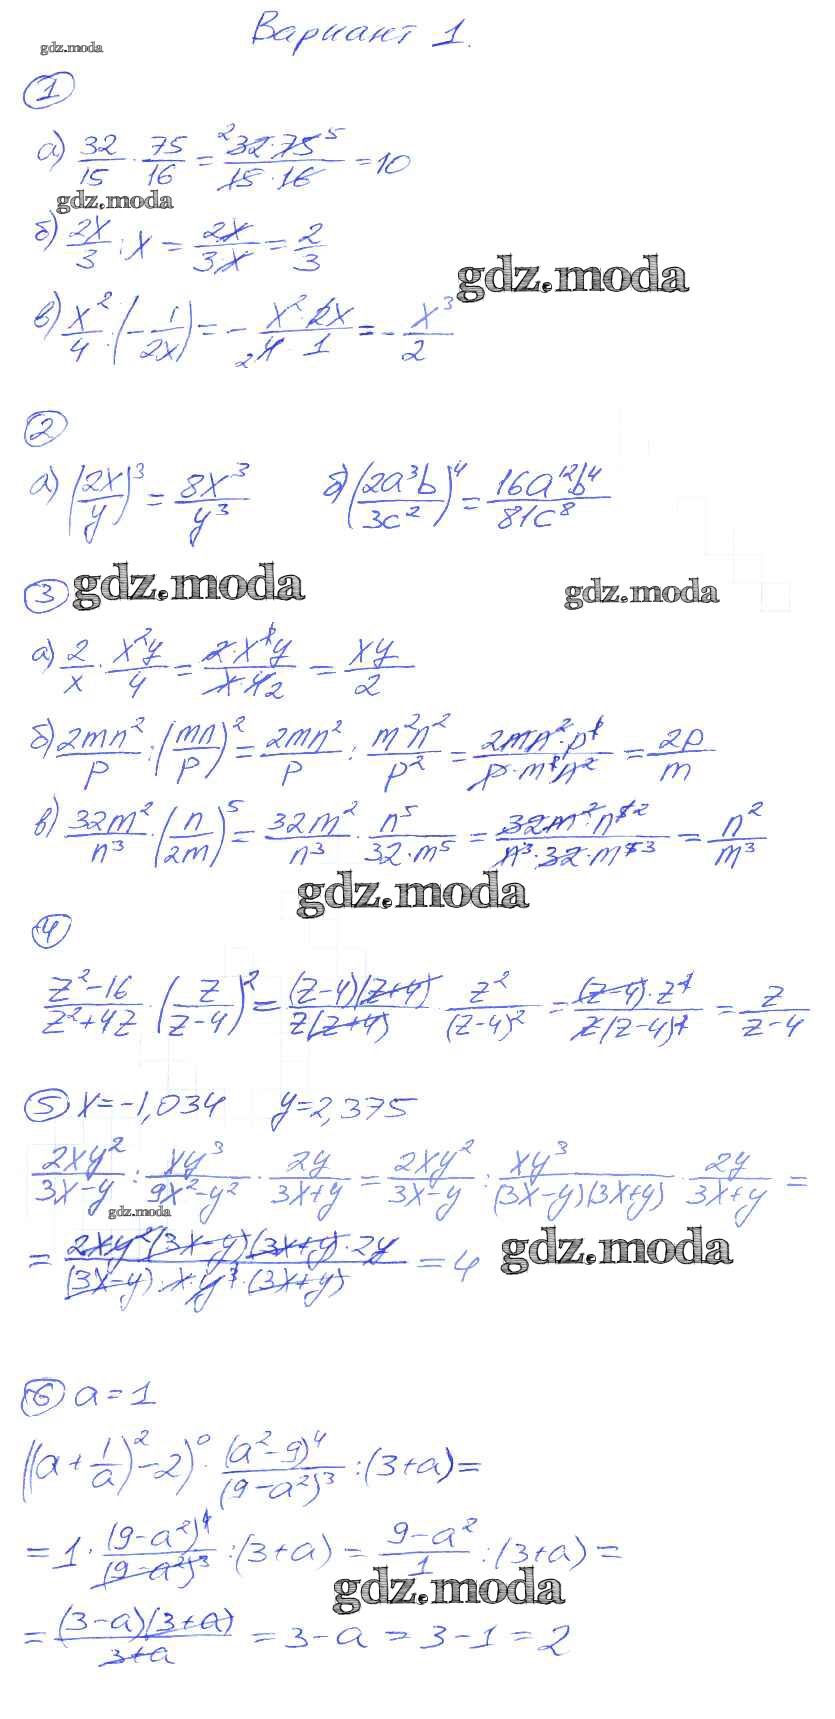 Вариант 1.
gdz.moda
1
а) 32/15 · 75/16 = ²32·75⁵/15·16 = 10
gdz.moda
б) 2x/3 : x = 2x/3·x = 2/3
gdz.moda
в) x²/4 : (-1/2x) = -x²·2x/₂4·1 = -x³/2
2
а) (2x/y)³ = 8x³/y³ б) (2a³b/3c²)⁴ = 16a¹²b⁴/81c⁸
3 gdz.moda gdz.moda
а) 2/x · x²y/4 = 2·x²y/x·4₂ = xy/2
б) 2mn²/p : (mn/p)² = 2mn²/p : m²n²/p² = 2mn²·p²/p·m²n² = 2p/m
в) 32m²/n³ · (n/2m)⁵ = 32m²/n³ · n⁵/32·m⁵ = 32m²·n⁵²/n³·32·m⁵³ = n²/m³
gdz.moda
4
z²-16/z²+4z · (z/z-4)² = (z-4)(z+4)/z(z+4) · z²/(z-4)² = (z-4)·z²/z(z-4)² = z/z-4
5 x=-1,034 y=2,375
2xy²/3x-y : xy³/9x²-y² · 2y/3x+y = 2xy²/3x-y : xy³/(3x-y)(3x+y) · 2y/3x+y =
gdz.moda
= 2xy²(3x-y)(3x+y)·2y/(3x-y)·x·y³·(3x+y) = 4
gdz.moda
6 a=1
((a+1/a)²-2)⁰ · (a²-9)⁴/(9-a²)³ : (3+a) =
= 1 · (9-a²)⁴/(9-a²)³ : (3+a) = 9-a²/1 : (3+a) =
gdz.moda
= (3-a)(3+a)/3+a = 3-a = 3-1 = 2